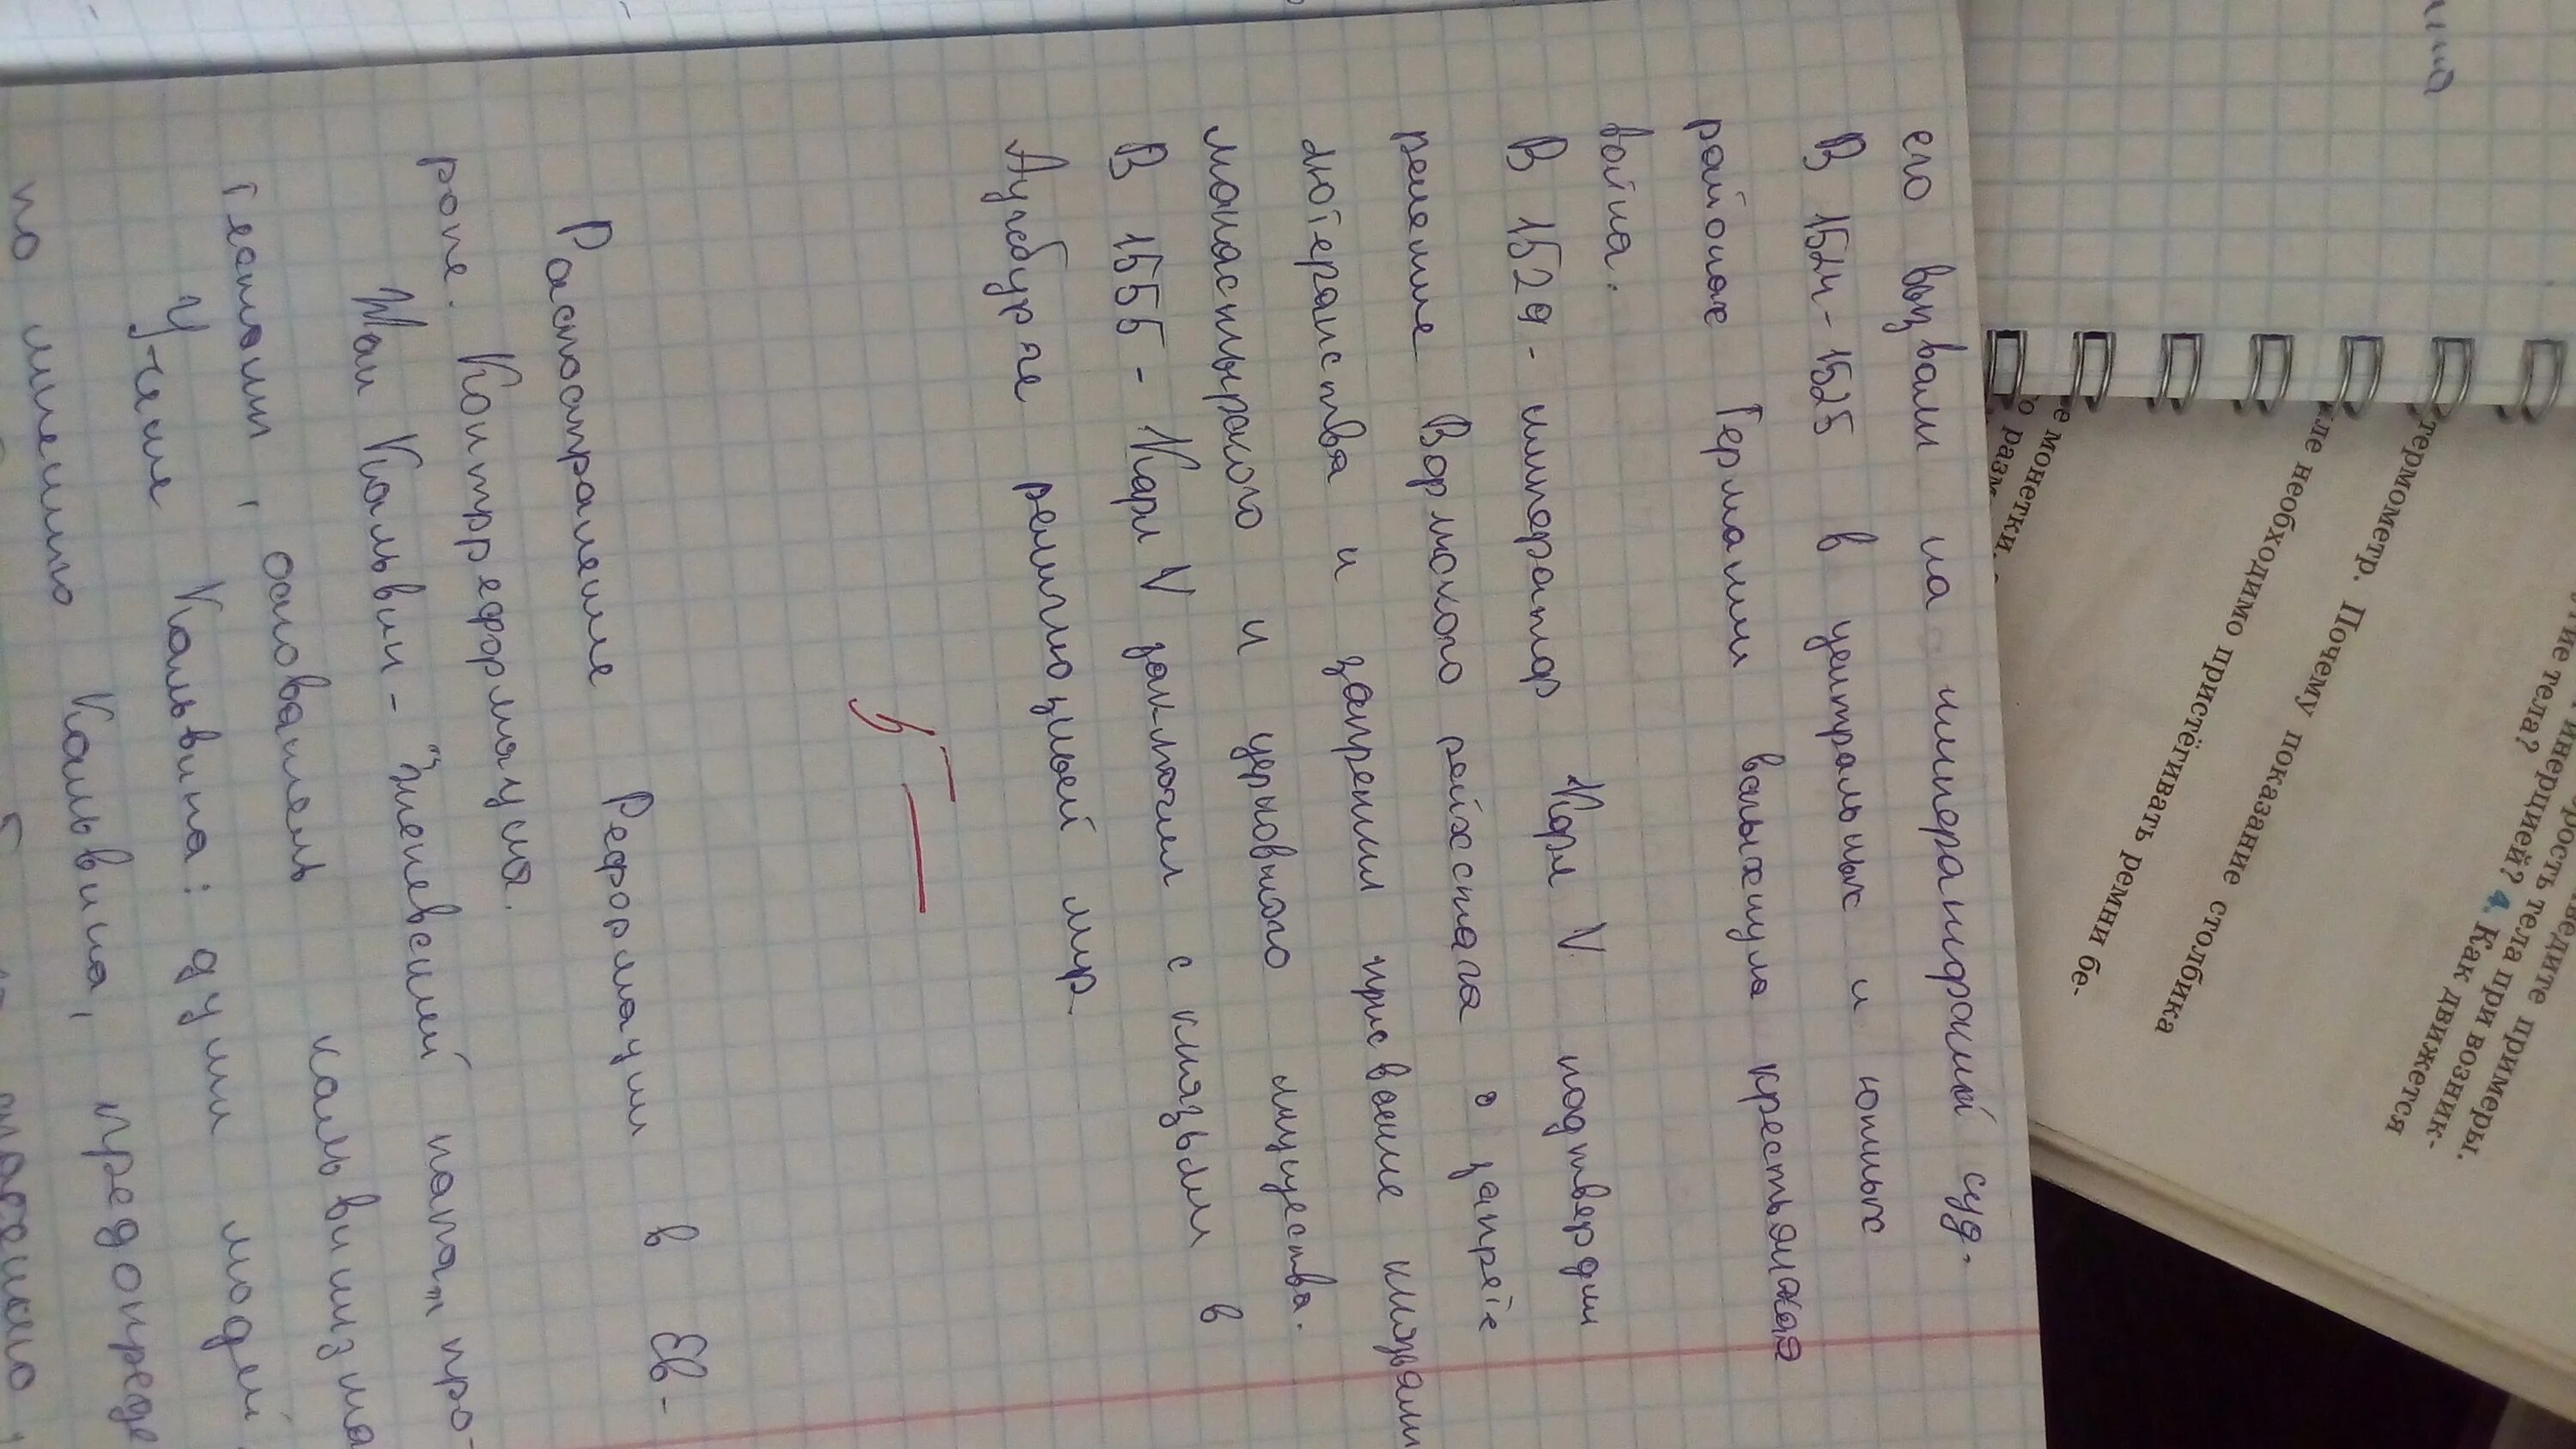 его вызвали на имперанифский суд.
В 1524-1525 в центральных и южных
районах Германии вспыхнула крестьянская
война.
В 1529 - император Карл V подтвердил
решение Вормского рейхстага о запрете
лютеранства и запретил присвоение князьями
монастырского и церковного имущества.
В 1555 - Карл V заключил с князьями в
Аугсбурге религиозный мир.
5-
Распостранение Реформации в Ев-
ропе. Контрреформация.
Жан Кальвин - "Женевский папа" про-
тестант, основатель кальвинизма
Учение Кальвина: души людей
по мнению Кальвина, предопреде
термометр. Почему показание столбика
ле необходимо пристёгивать ремни бе-
е монетки.
о разм
гие тела?
инерцией? 4. Как движется
рость тела при возник-
ведите примеры.